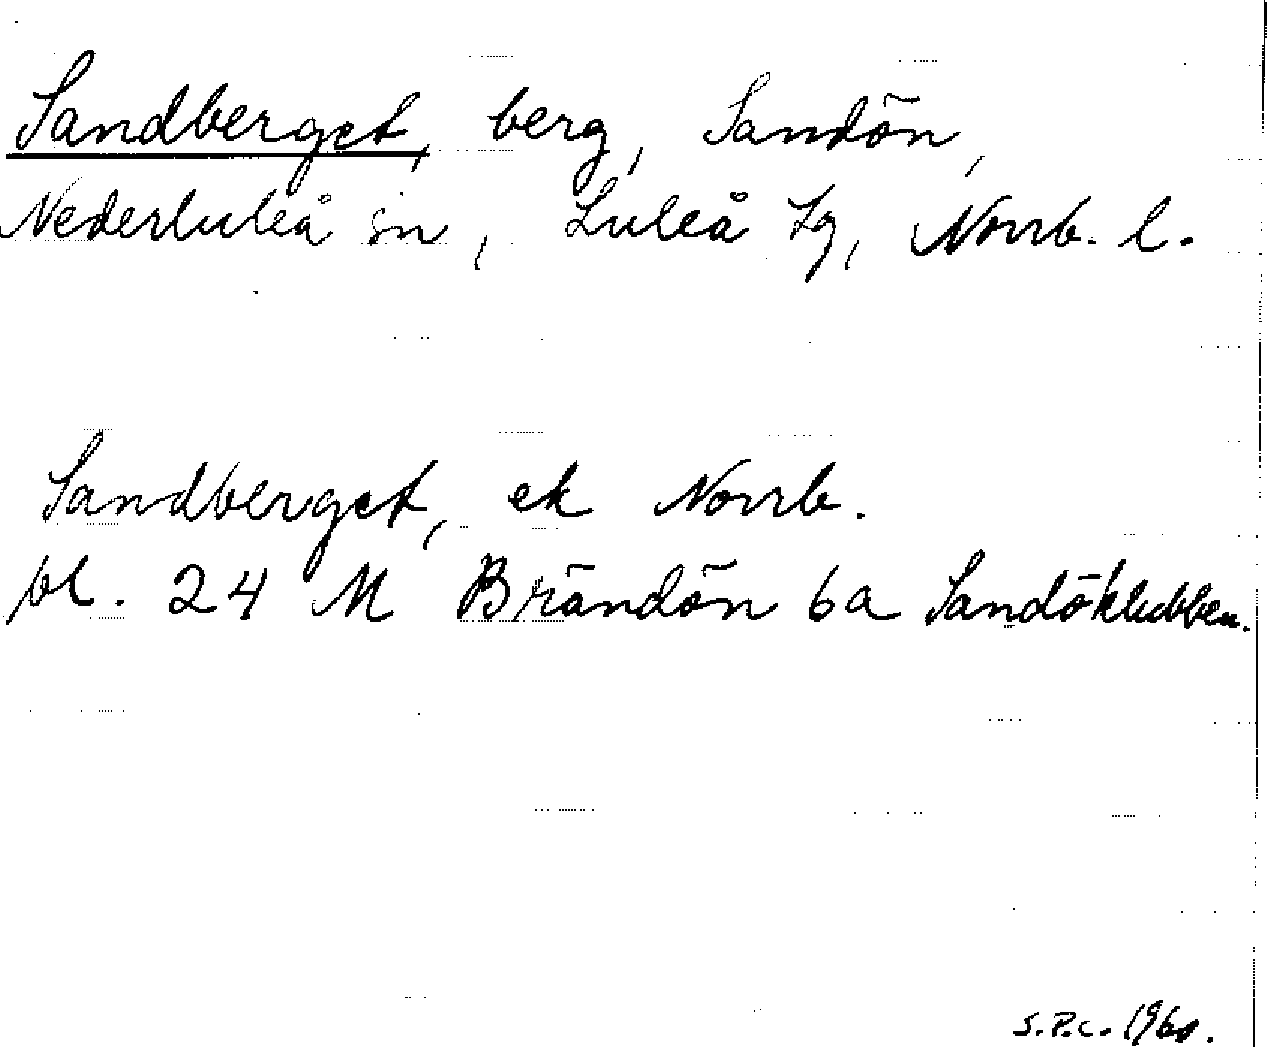 Sandberget, berg, Sandön,
Nederluleå sn, Luleå tg, Norrb. l.
Sandberget, ek Norrb.
bl. 24 M Brändön 6a Sandöklubben.
S.P.C. 1960.